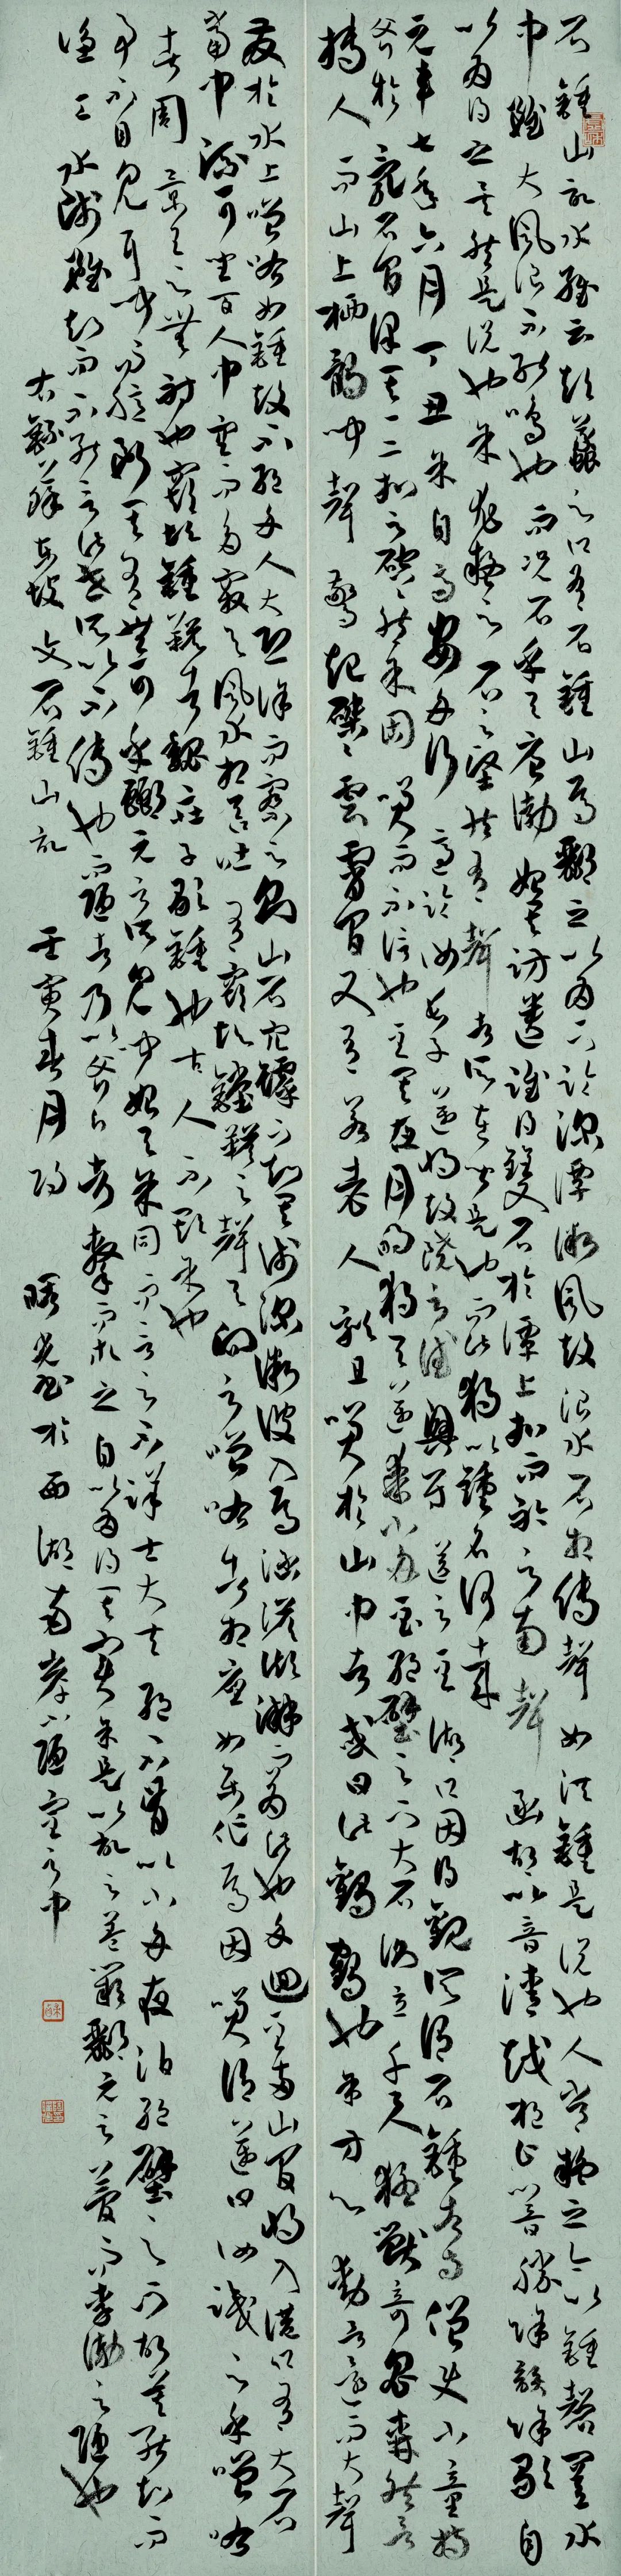 石鍾山記水經云彭蠡之口有石鍾山焉酈元以為下臨深潭微風鼓浪水石相搏聲如洪鍾是說也人常疑之今以鍾磬置水
中雖大風浪不能鳴也而況石乎至唐李渤始訪遺蹤得雙石於潭上扣而聆之南聲函胡北音清越枹止響騰餘韻徐歇自
以為得之矣然是說也余尤疑之石之鏗然有聲者所在皆是也而此獨以鍾名何哉
元豐七年六月丁丑余自齊安舟行適臨汝長子邁將赴饒之德興尉送之至湖口因得觀所謂石鍾者寺僧使小童持
斧於亂石間擇其一二扣之硿硿然余固笑而不信也至其夜月明獨與邁乘小舟至絕壁之下大石側立千尺猛獸奇鬼森然欲
搏人而山上栖鶻聞聲驚起磔磔雲霄間又有若老人欬且笑於山中者或曰此鸛鶴也余方心動欲還而大聲
發於水上噌吰如鍾鼓不絕舟人大恐徐而察之則山石穴罅不知其淺深微波入焉涵澹澎湃而為此也舟迴至兩山間將入港口有大石
當中流可坐百人中空而多竅與風水相吞吐有窾坎鏜鞳之聲與向之噌吰者相應如樂作焉因笑謂邁曰汝識之乎噌吰
者周景王之無射也窾坎鏜鞳者魏莊子歌鍾也古人不欺余也
事不目見耳聞而臆斷其有無可乎酈元之所見聞殆與余同而言之不詳士大夫終不肯以小舟夜泊絕壁之下故莫能知而
漁工水師雖知而不能言此世所以不傳也而陋者乃以斧斤考擊而求之自以為得其實余是以記之蓋嘆酈元之簡而李渤之陋也
右錄蘇東坡文石鍾山記 壬寅春月 曙光書於西湖南岸小陋室之中